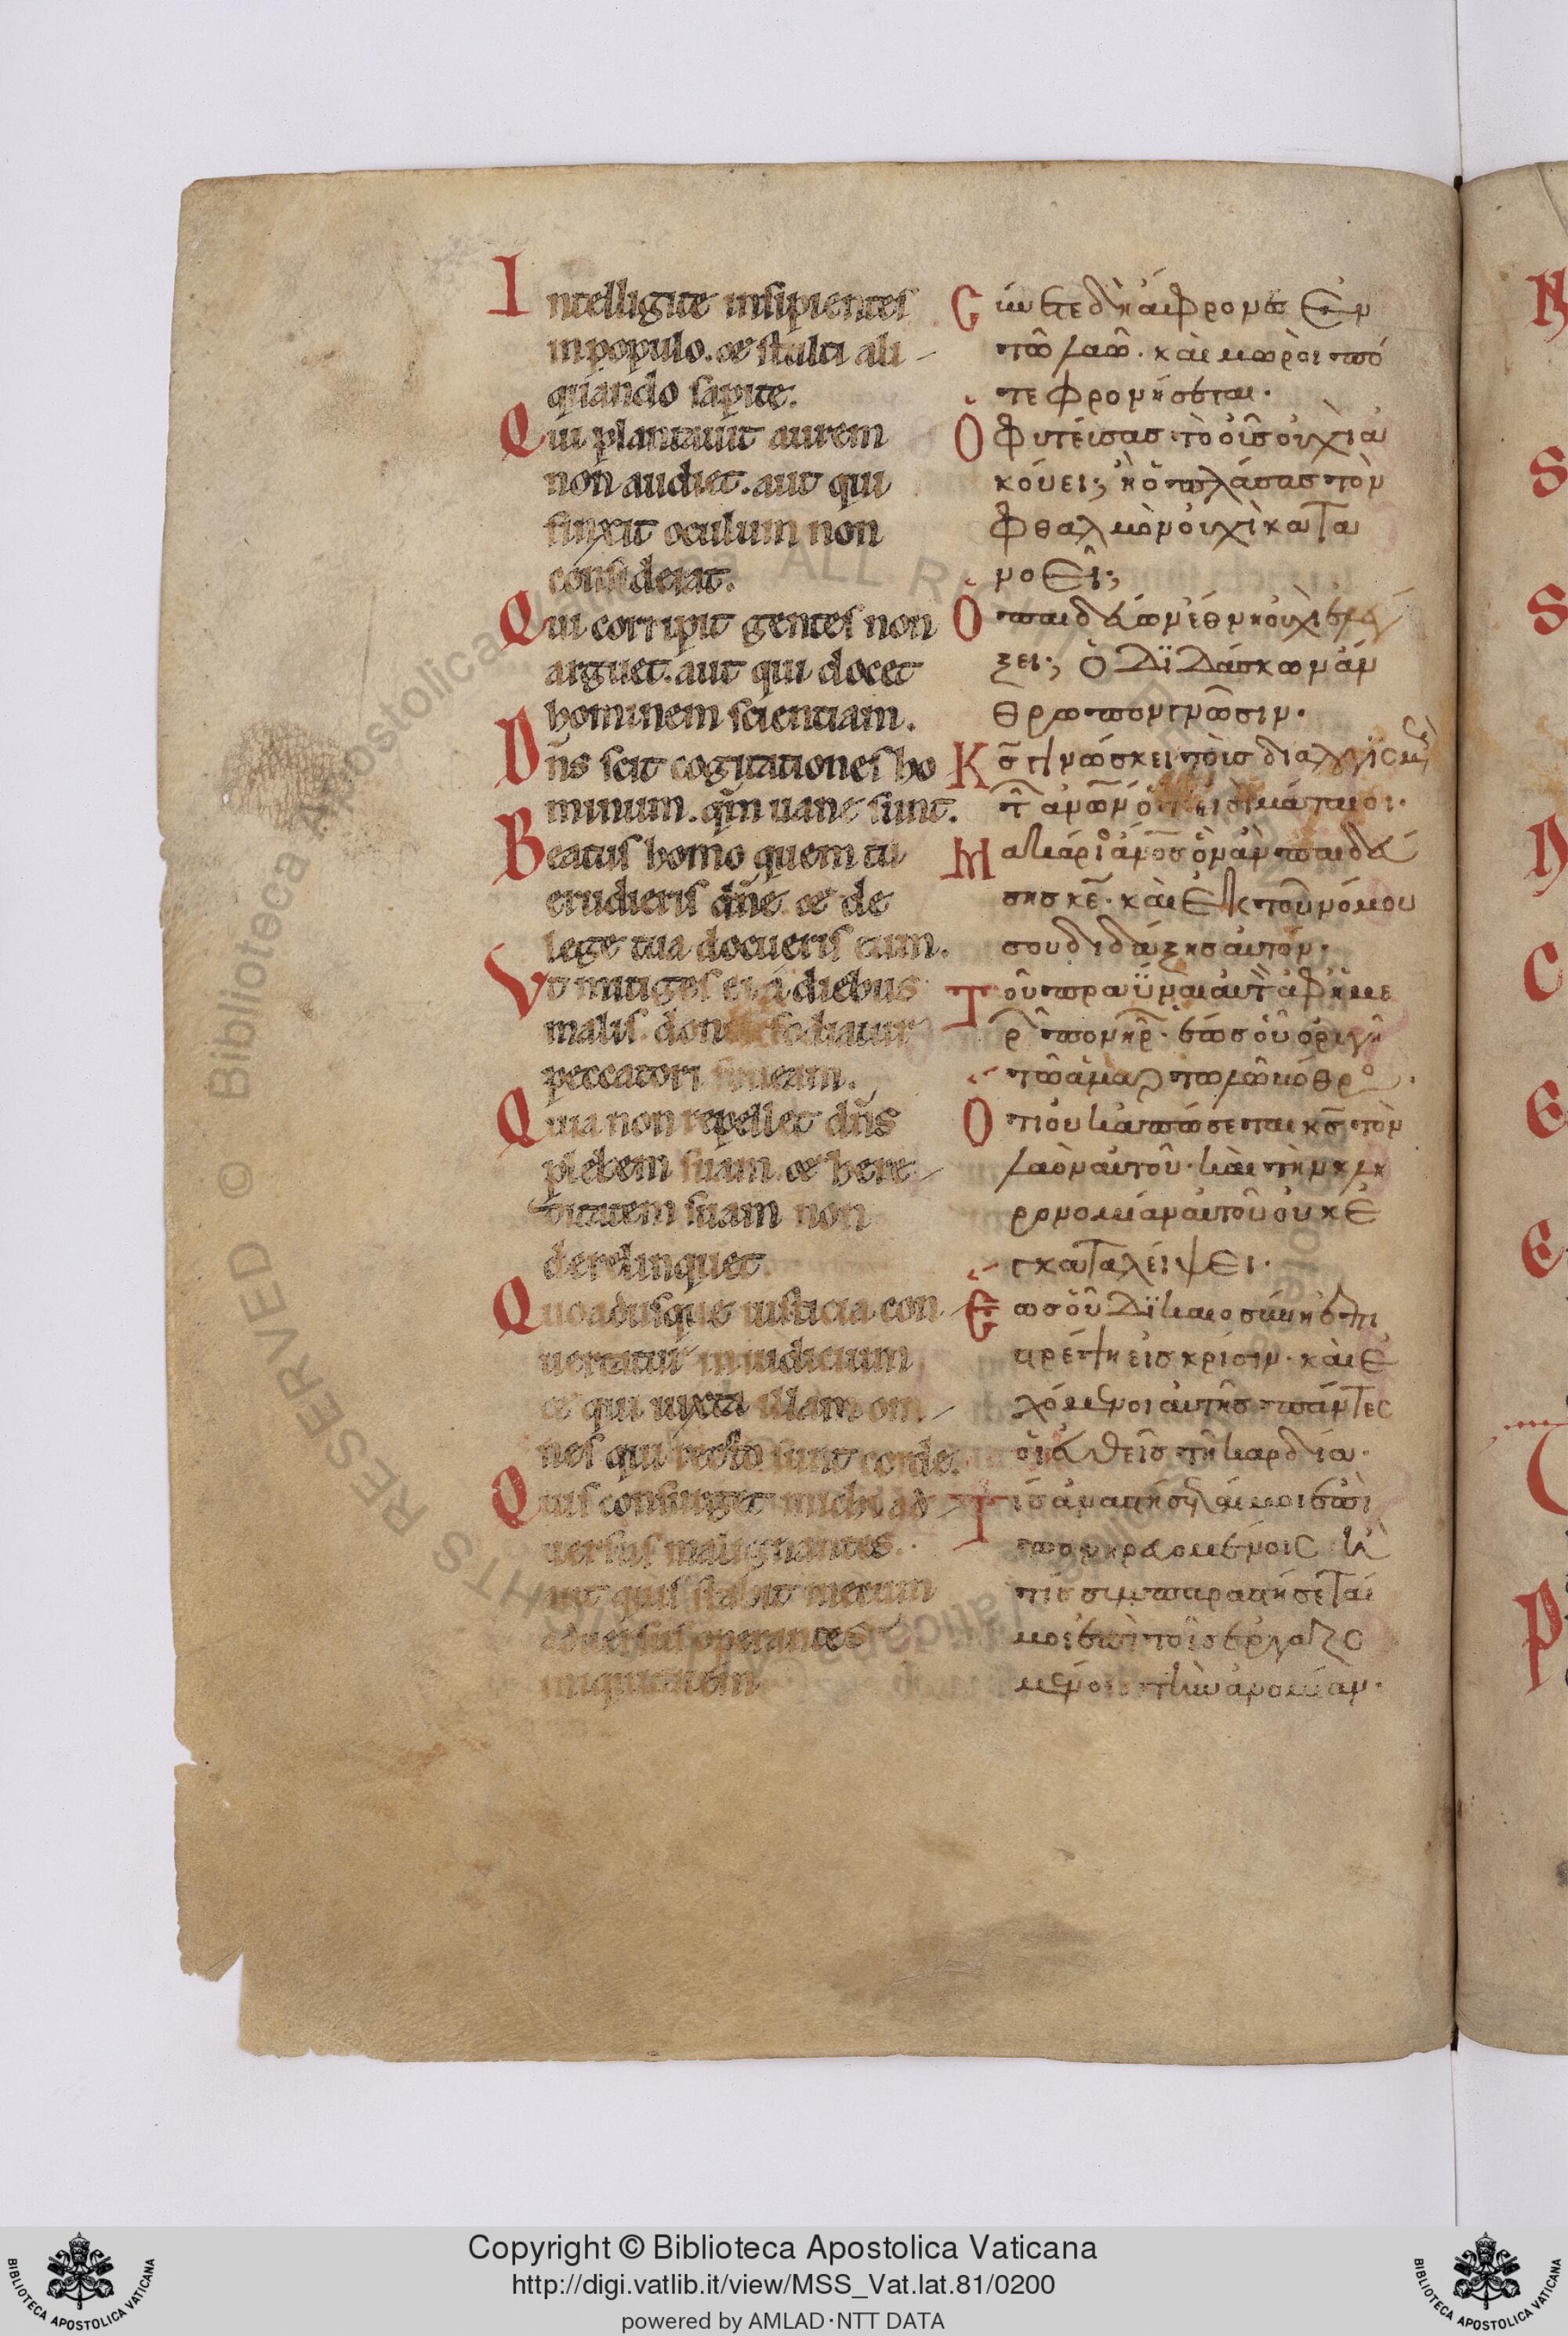 Intelligite insipientes
in populo. & stulti ali-
quando sapite.
Qui plantauit aurem
non audiet. aut qui
finxit oculum non
considerat.
Qui corripit gentes non
arguet. aut qui docet
hominem scientiam.
Dn̄s scit cogitationes ho
minum. qm̄ uane sunt.
Beatus homo quem tu
erudieris dn̄e. & de
lege tua docueris eum.
Vt mitiges ei a diebus
malis. donec fodiatur
peccatori fouea.
Quia non repellet dn̄s
plebem suam. & here-
ditatem suam non
derelinquet.
Quoadusque iusticia con-
uertatur in iudicium
& qui iuxta illam om-
nes qui recto sunt corde.
Quis consurget michi ad-
uersus malignantes.
aut quis stabit mecum
aduersus operantes
iniquitatem
Σύνετε δὴ ἄφρονες ἐν
τῶ λαῶ. καὶ μωροὶ πό
τε φρονήσεται.
Ὁ φυτεύσας τὸ οὖς οὐχὶ ἀ
κούει; ἢ ὁ πλάσας τὸν
φθαλμὸν οὐχὶ κατα
νοεῖ;
Ὁ παιδεύων ἔθνη οὐχὶ ἐλέγ
ξει; ὁ διδάσκων ἄν
θρωπον γνῶσιν.
Κς̄ γινώσκει τοὺς διαλογισμοὺς
τῶν ἀνων̄ ὅτι εἰσὶ μάταιοι.
Μακάριος ἄνος̄ ὃν ἂν παιδεύ
σης κε̄. καὶ ἐκ τοῦ νόμου
σου διδάξης αὐτόν.
Τοῦ πραῧναι αὐτὸν ἀφ' ἡμε
ρῶν πονηρῶν. ἕως οὗ ὀρυγῆ
τῶ ἁμαρτωλῶ βόθρος.
Ὅτι οὐκ ἀπώσεται κς̄ τὸν
λαὸν αὐτοῦ. καὶ τὴν κλη
ρονομίαν αὐτοῦ οὐκ ἐ
γκαταλείψει.
Ἕως οὗ δικαιοσύνη ἐπι
στρέψη εἰς κρίσιν. καὶ ἐ
χόμενοι αὐτῆς πάντες
οἱ εὐθεῖς τῆ καρδία.
Τίς ἀναστήσεταί μοι ἐπὶ
πονηρευομένοις ἢ
τίς συμπαραστήσεταί
μοι ἐπὶ τοῖς ἐργαζο
μένοις τὴν ἀνομίαν.
Copyright © Biblioteca Apostolica Vaticana
http://digi.vatlib.it/view/MSS_Vat.lat.81/0200
powered by AMLAD·NTT DATA